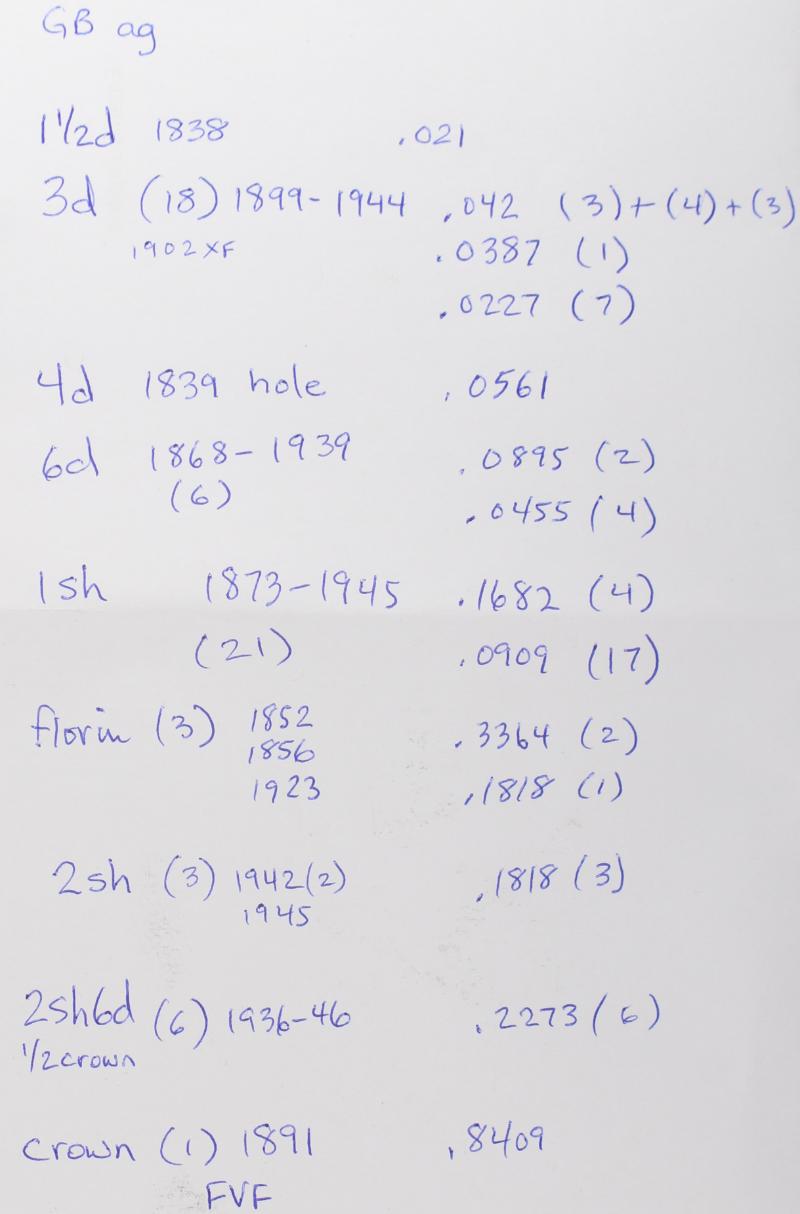 GB ag
1 1/2d 1838 .021
3d (18) 1899-1944 .042 (3)+(4)+(3)
1902 XF .0387 (1)
.0227 (7)
4d 1839 hole .0561
6d 1868-1939 .0895 (2)
(6) .0455 (4)
1sh 1873-1945 .1682 (4)
(21) .0909 (17)
florin (3) 1852 .3364 (2)
1856
1923 .1818 (1)
2sh (3) 1942(2) .1818 (3)
1945
2sh6d (6) 1936-46 .2273 (6)
1/2crown
crown (1) 1891 .8409
FVF